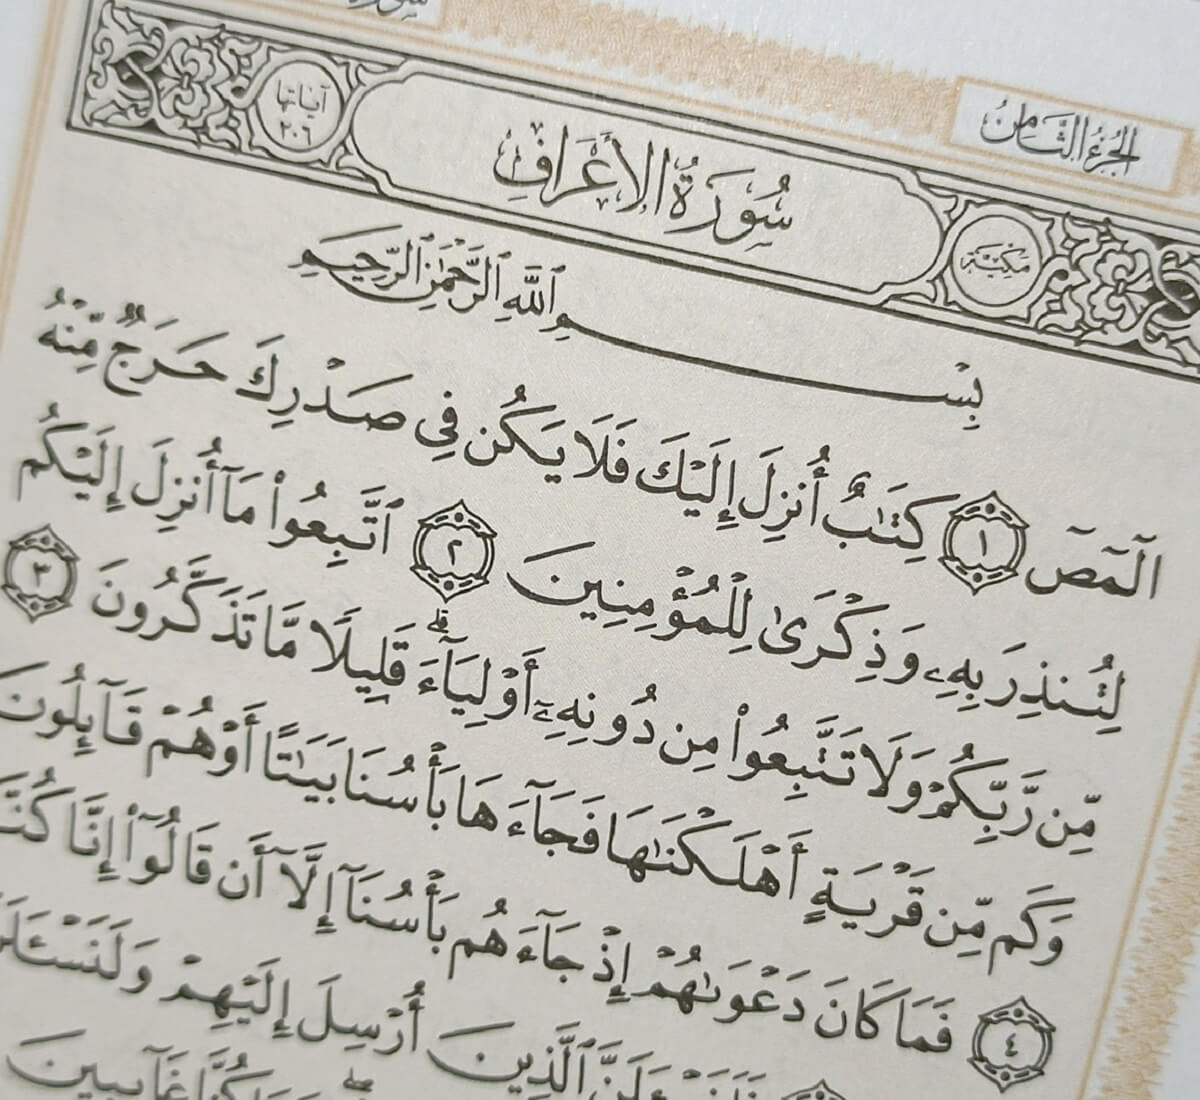 الجُزْءُ الثَّامِنُ
سُورَةُ الأَعْرَافِ
آياتها ٢٠٦
مكيّة
بِسْمِ ٱللَّهِ ٱلرَّحْمَٰنِ ٱلرَّحِيمِ
الٓمٓصٓ ١ كِتَٰبٌ أُنزِلَ إِلَيْكَ فَلَا يَكُن فِى صَدْرِكَ حَرَجٌ مِّنْهُ
لِتُنذِرَ بِهِۦ وَذِكْرَىٰ لِلْمُؤْمِنِينَ ٢ ٱتَّبِعُوا۟ مَآ أُنزِلَ إِلَيْكُم
مِّن رَّبِّكُمْ وَلَا تَتَّبِعُوا۟ مِن دُونِهِۦٓ أَوْلِيَآءَۗ قَلِيلًا مَّا تَذَكَّرُونَ ٣
وَكَم مِّن قَرْيَةٍ أَهْلَكْنَٰهَا فَجَآءَهَا بَأْسُنَا بَيَٰتًا أَوْ هُمْ قَآئِلُونَ
٤ فَمَا كَانَ دَعْوَىٰهُمْ إِذْ جَآءَهُم بَأْسُنَآ إِلَّآ أَن قَالُوٓا۟ إِنَّا كُنَّا
ٱلَّذِينَ أُرْسِلَ إِلَيْهِمْ
غَآئِبِينَ